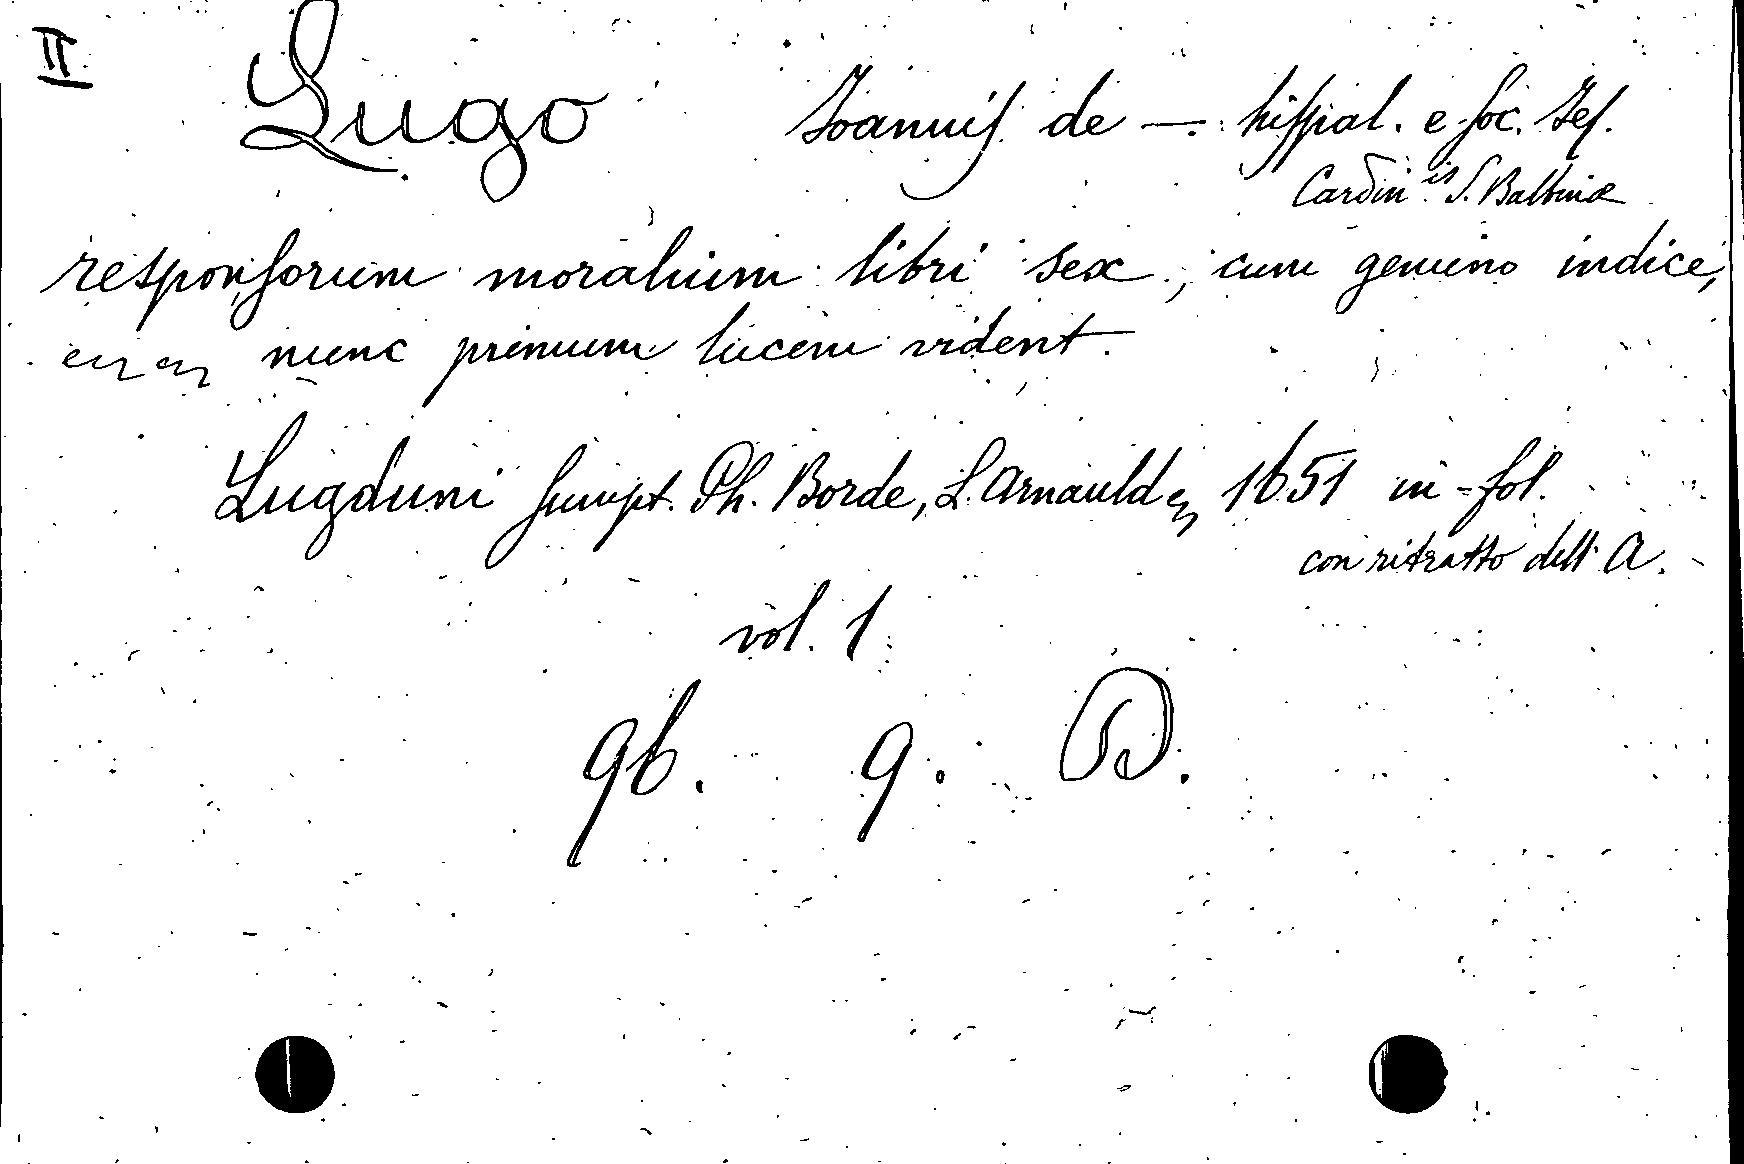 II
Lugo Ioannis de — hispal. e soc. Jes.
Cardin.is S. Balbinæ
responsorum moralium libri sex, cum gemino indice,
nunc primum lucem vident.
Lugduni sumpt. Ph. Borde, L. Arnauld 1651 in-fol.
con ritratto dell'A.
vol. 1
96. 9.